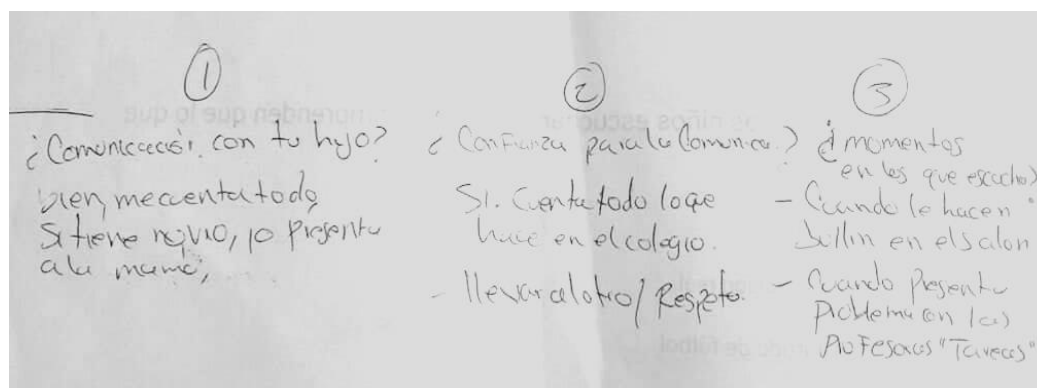 1
¿Comunicación con tu hijo?
bien, me cuenta todo,
Si tiene novio, lo presenta
a la mamá,
2
¿Confianza para la Comunica.?
Si. Cuenta todo lo que
hace en el colegio.
- llevar al otro / Respeto.
3
¿momentos
en los que escucho?
- Cuando le hacen
bullin en el salon
- Cuando presenta
Problema con las
Profesoras "Tareas"